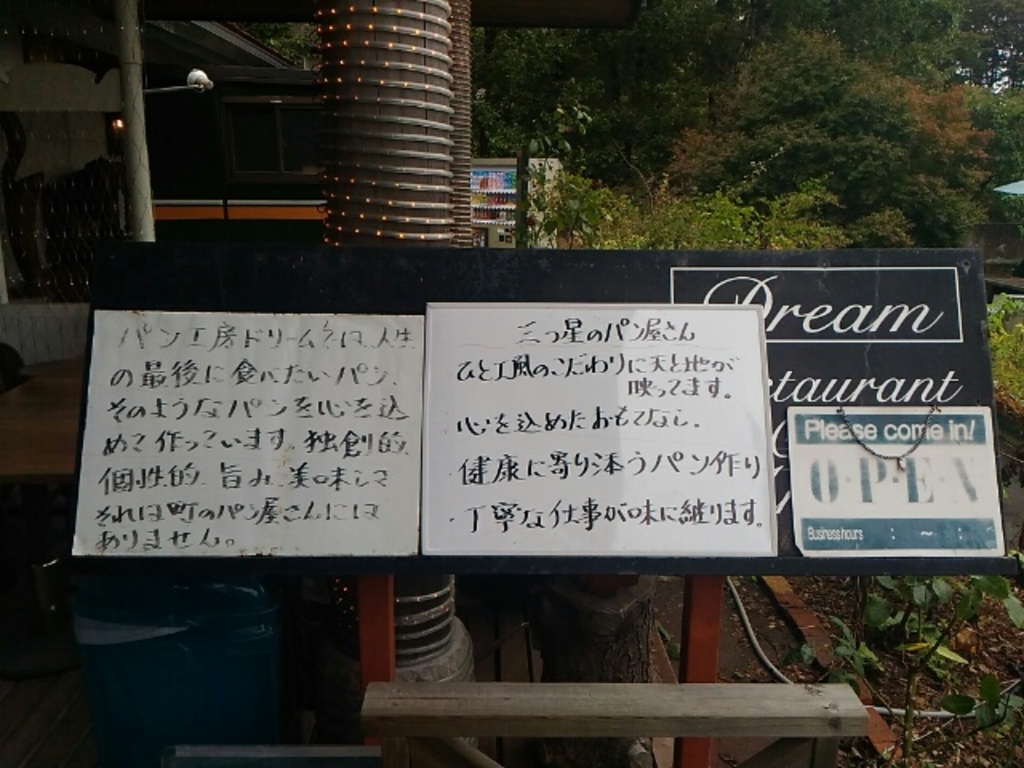 パン工房ドリームでは、人生
の最後に食べたいパン、
そのようなパンを心を込
めて作っています。独創的、
個性的、旨み、美味しさ
それは町のパン屋さんには
ありません。
三つ星のパン屋さん
ひと工風のこだわりに天と地が
映ってます。
・心を込めたおもてなし。
・健康に寄り添うパン作り
・丁寧な仕事が味に継ります。
Dream
staurant
Please come in!
O・P・E・N
Business hours : ~ :